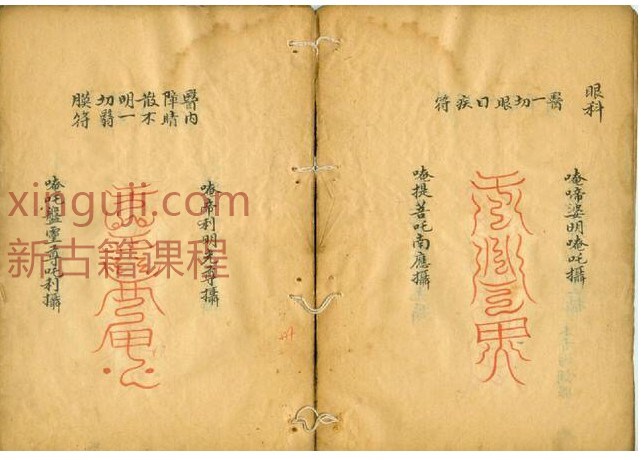 眼科
醫一切眼目疾符
唵啼婆明唵吒攝
唵提菩吒南應攝
醫内
障睛
散不
明一
切翳
膜符
唵希利明元尊攝
唵吒盤靈尊吒利攝
xinguji.com
新古籍课程